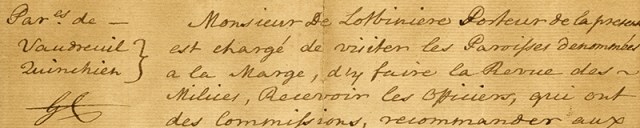 Par.es de —
Vaudreuil
Quinchien
Monsieur De Lotbiniere Porteur de la presente
est chargé de visiter les Paroisses denommées
a la Marge, d'y faire la Revue des
Milices, Recevoir les Officiers, qui ont
des Commissions, recommander aux